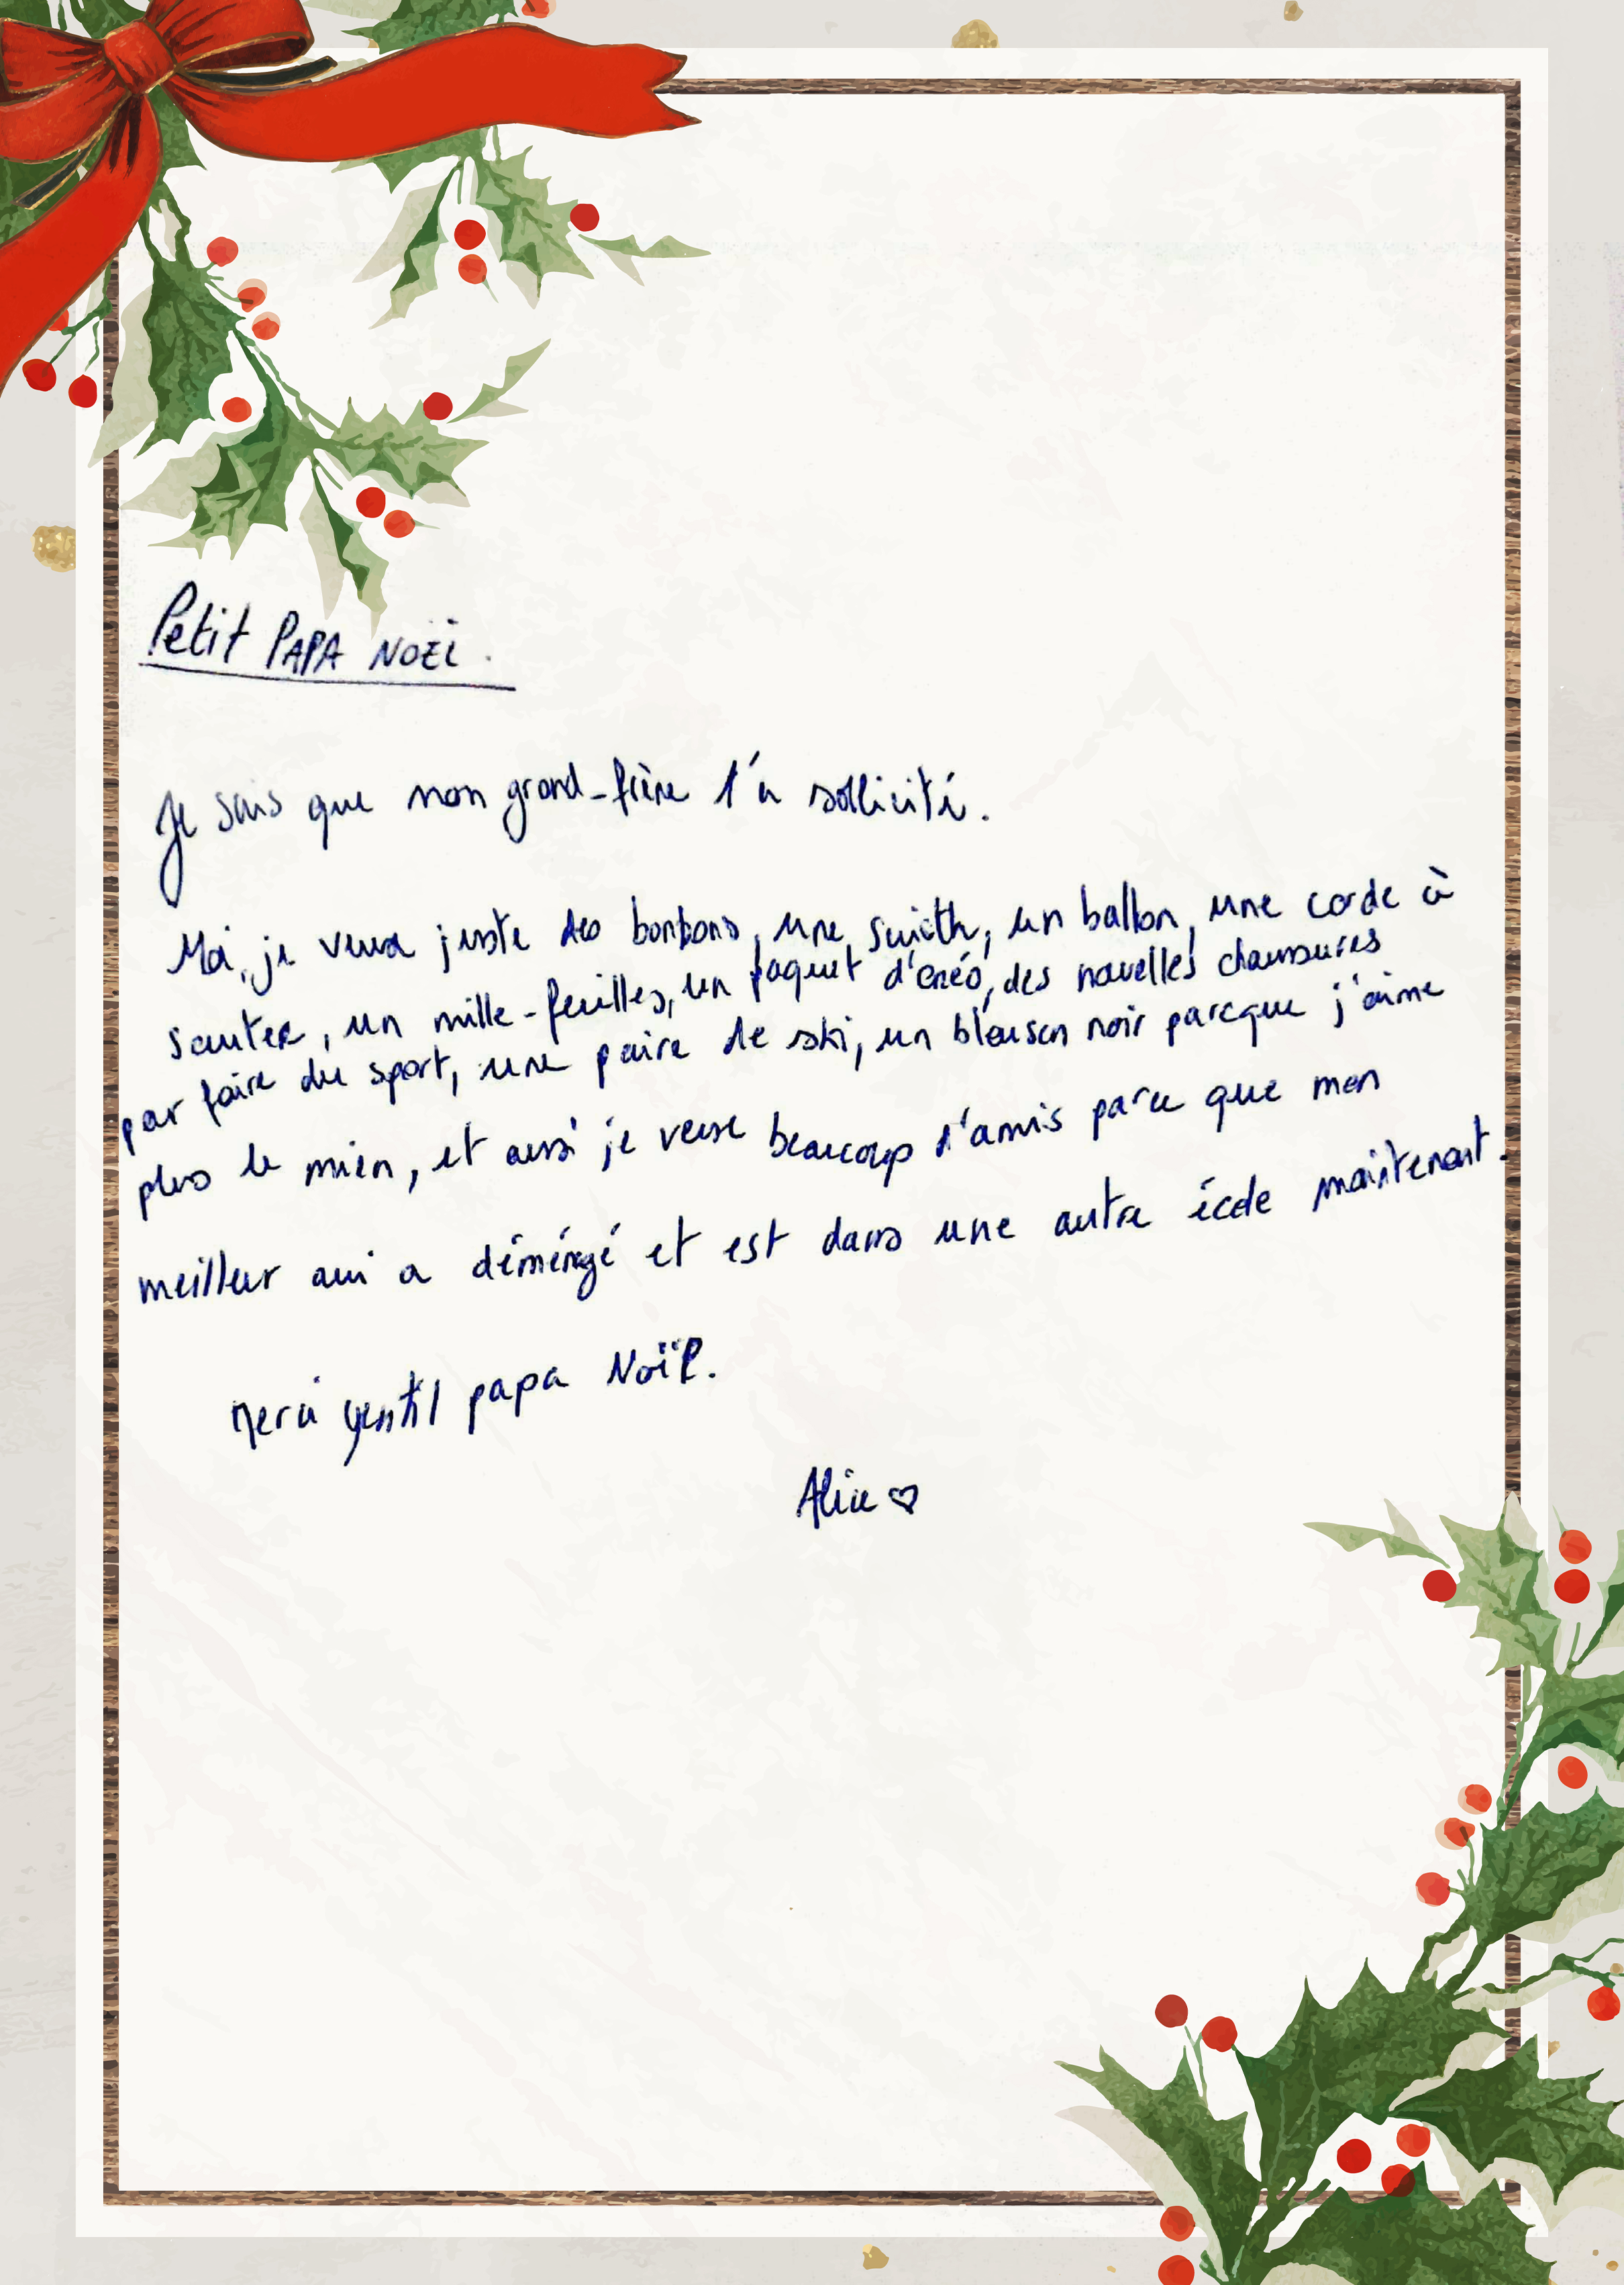 Petit PAPA NOËL.
Je sais que mon grand-frère t'a sollicité.
Moi, je veux juste des bonbons, une switch, un ballon, une corde à
sauter, un mille-feuilles, un paquet d'oréo, des nouvelles chaussures
par faire du sport, une paire de ski, un blouson noir parcque j'aime
plus le mien, et aussi je veux beaucoup d'amis parce que mon
meilleur ami a déménagé et est dans une autre école maintenant.
Merci gentil papa Noël.
Alice ♡